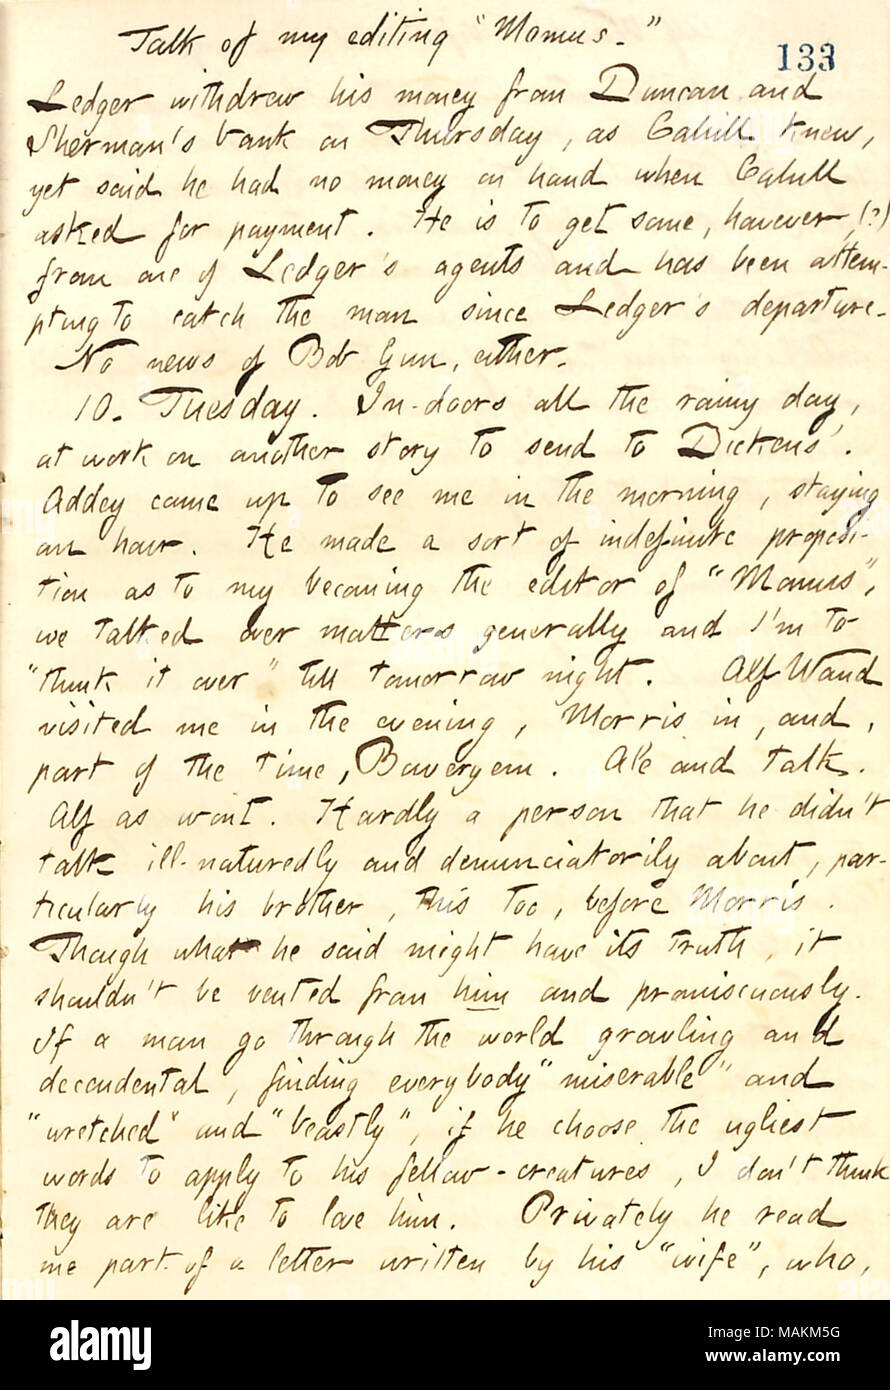 Talk of my editing "Momus."
133
Ledger withdrew his money from Duncan and
Sherman's bank on Thursday, as Cahill knew,
yet said he had no money on hand when Cahill
asked for payment. He is to get some, however, (?)
from one of Ledger's agents and has been attem-
pting to catch the man since Ledger's departure.
No news of Bob Gun, either.
10. Tuesday. In-doors all the rainy day,
at work on another story to send to Dickens'.
Addey came up to see me in the morning, staying
an hour. He made a sort of indefinite proposi-
tion as to my becoming the editor of "Momus",
we talked over matters generally and I'm to
"think it over" till tomorrow night. Alf Waud
visited me in the evening, Morris in, and,
part of the time, Boweryem. Ale and talk.
Alf as wont. Hardly a person that he didn't
talk ill-naturedly and denunciatorily about, par-
ticularly his brother, this too, before Morris.
Though what he said might have its truth, it
shouldn't be vented from him and promiscuously.
If a man go through the world growling and
decendental, finding everybody "miserable" and
"wretched" and "beastly", if he choose the ugliest
words to apply to his fellow-creatures, I don't think
they are like to love him. Privately he read
me part of a letter written by his "wife", who,
alamy
Image ID: MAKM5G
www.alamy.com